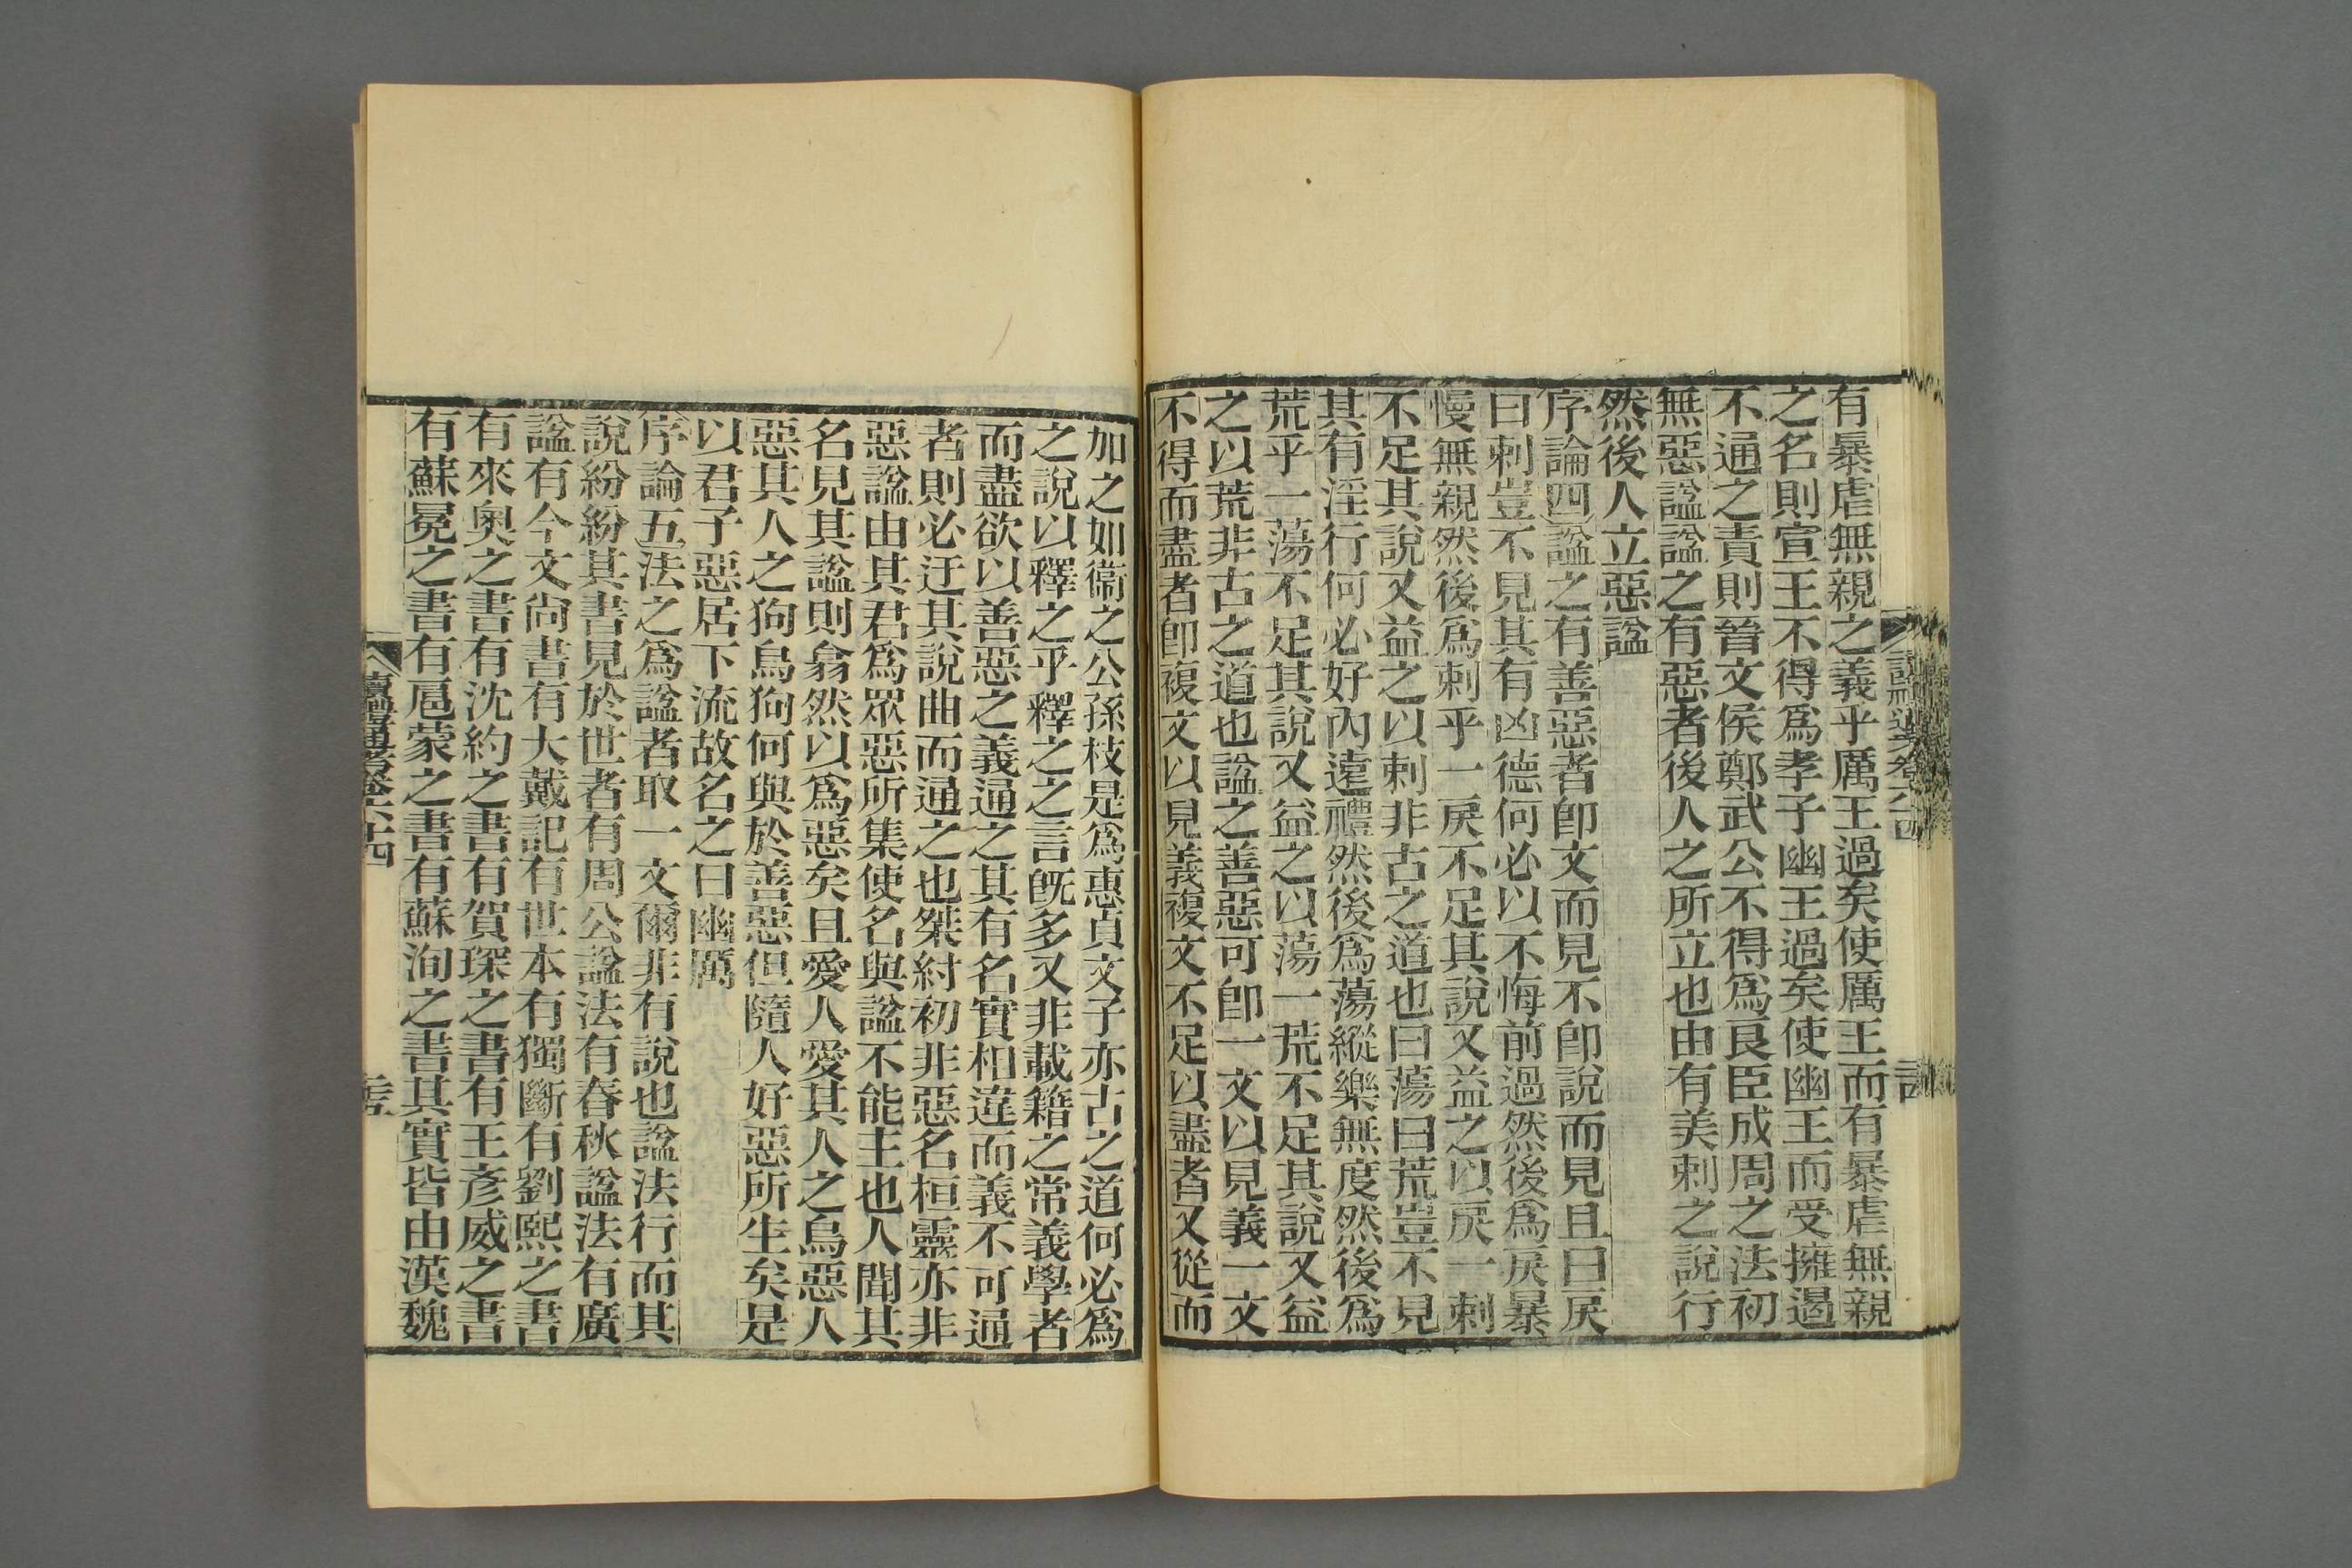 有暴虐無親之義乎厲王過矣使厲王而有暴虐無親
之名則宣王不得爲孝子幽王過矣使幽王而受擁遏
不通之責則晉文侯鄭武公不得爲良臣成周之法初
無惡諡諡之有惡者後人之所立也由有美刺之說行
然後人立惡諡
序論四諡之有善惡者卽文而見不卽說而見且曰戾
曰刺豈不見其有凶德何必以不悔前過然後爲戾暴
慢無親然後爲刺乎一戾不足其說又益之以戾一刺
不足其說又益之以刺非古之道也曰蕩曰荒豈不見
其有淫行何必好內遠禮然後爲蕩縱樂無度然後爲
荒乎一蕩不足其說又益之以蕩一荒不足其說又益
之以荒非古之道也諡之善惡可卽一文以見義一文
不得而盡者卽複文以見義複文不足以盡者又從而
加之如衞之公孫枝是爲惠貞文子亦古之道何必爲
之說以釋之乎釋之之言旣多又非載籍之常義學者
而盡欲以善惡之義通之其有名實相違而義不可通
者則必迂其說曲而通之也桀紂初非惡名桓靈亦非
惡諡由其君爲眾惡所集使名與諡不能主也人聞其
名見其諡則翕然以爲惡矣且愛人愛其人之烏惡人
惡其人之狗烏狗何與於善惡但隨人好惡所生矣是
以君子惡居下流故名之曰幽厲
序論五法之爲諡者取一文爾非有說也諡法行而其
說紛紛其書見於世者有周公諡法有春秋諡法有廣
諡有今文尙書有大戴記有世本有獨斷有劉熙之書
有來奧之書有沈約之書有賀琛之書有王彥威之書
有蘇冕之書有扈蒙之書有蘇洵之書其實皆由漢魏